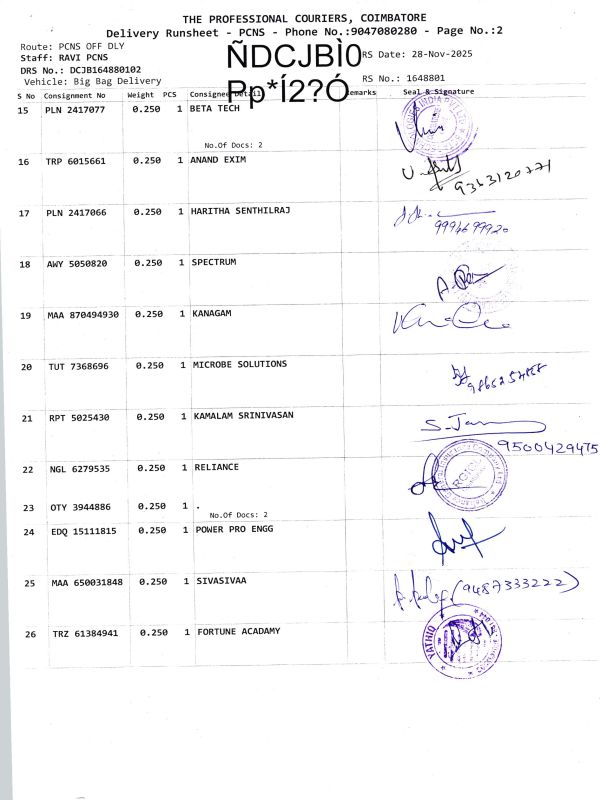 THE PROFESSIONAL COURIERS, COIMBATORE
Delivery Runsheet - PCNS - Phone No.:9047080280 - Page No.:2
Route: PCNS OFF DLY
Staff: RAVI PCNS
ÑDCJBÌ0
RS Date: 28-Nov-2025
DRS No.: DCJB164880102
Vehicle: Big Bag Delivery
Pp*Í2??Ó
RS No.: 1648801
S No Consignment No Weight PCS Consignee Detail Remarks Seal & Signature
15 PLN 2417077 0.250 1 BETA TECH
No.Of Docs: 2
16 TRP 6015661 0.250 1 ANAND EXIM
9363120771
17 PLN 2417066 0.250 1 HARITHA SENTHILRAJ
9994699920
18 AWY 5050820 0.250 1 SPECTRUM
19 MAA 870494930 0.250 1 KANAGAM
20 TUT 7368696 0.250 1 MICROBE SOLUTIONS
21 RPT 5025430 0.250 1 KAMALAM SRINIVASAN
9500429475
22 NGL 6279535 0.250 1 RELIANCE
23 OTY 3944886 0.250 1 .
No.Of Docs: 2
24 EDQ 15111815 0.250 1 POWER PRO ENGG
25 MAA 650031848 0.250 1 SIVASIVAA
(9487333222)
26 TRZ 61384941 0.250 1 FORTUNE ACADAMY